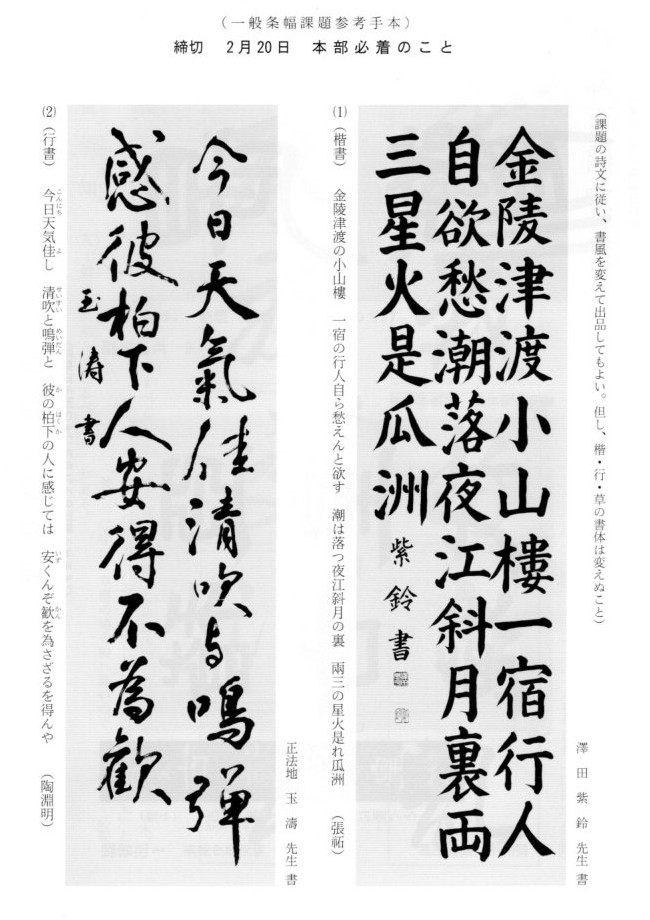 (一般条幅課題参考手本)
締切 2月20日 本部必着のこと
(課題の詩文に従い、書風を変えて出品してもよい。但し、楷・行・草の書体は変えぬこと)
澤田紫鈴先生書
金陵津渡小山樓一宿行人
自欲愁潮落夜江斜月裏両
三星火是瓜洲
紫鈴書
(1) (楷書) 金陵津渡の小山樓 一宿の行人自ら愁えんと欲す 潮は落つ夜江斜月の裏 兩三の星火是れ瓜洲 (張祐)
正法地玉濤先生書
今日天氣佳清吹与鳴弾
感彼柏下人安得不為歡
玉濤書
(2) (行書) 今日天気佳し 清吹と鳴弾と 彼の柏下の人に感じては 安くんぞ歓を為さざるを得んや (陶淵明)
こんにち よ せいすい めいだん か はくか いず かん